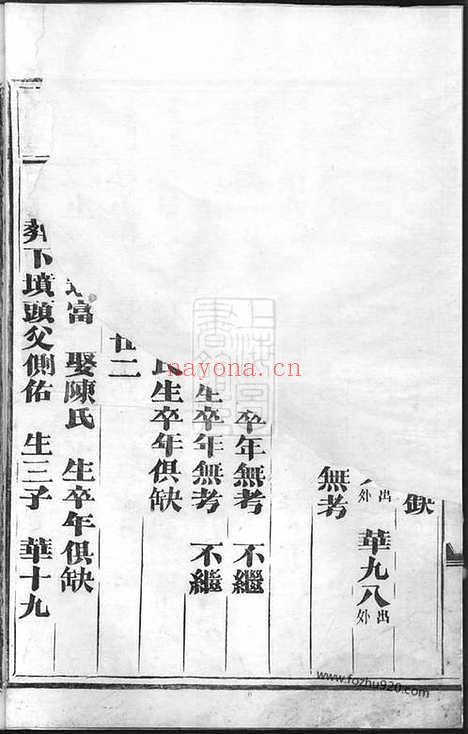 缺
外出 華九八 外出
無考
卒年無考 不繼
生卒年無考 不繼
氏生卒年俱缺
廿二
富 娶陳氏 生卒年俱缺
葬下墳頭父側佑 生三子 華十九
nayona.cn
www.fozhu920.com